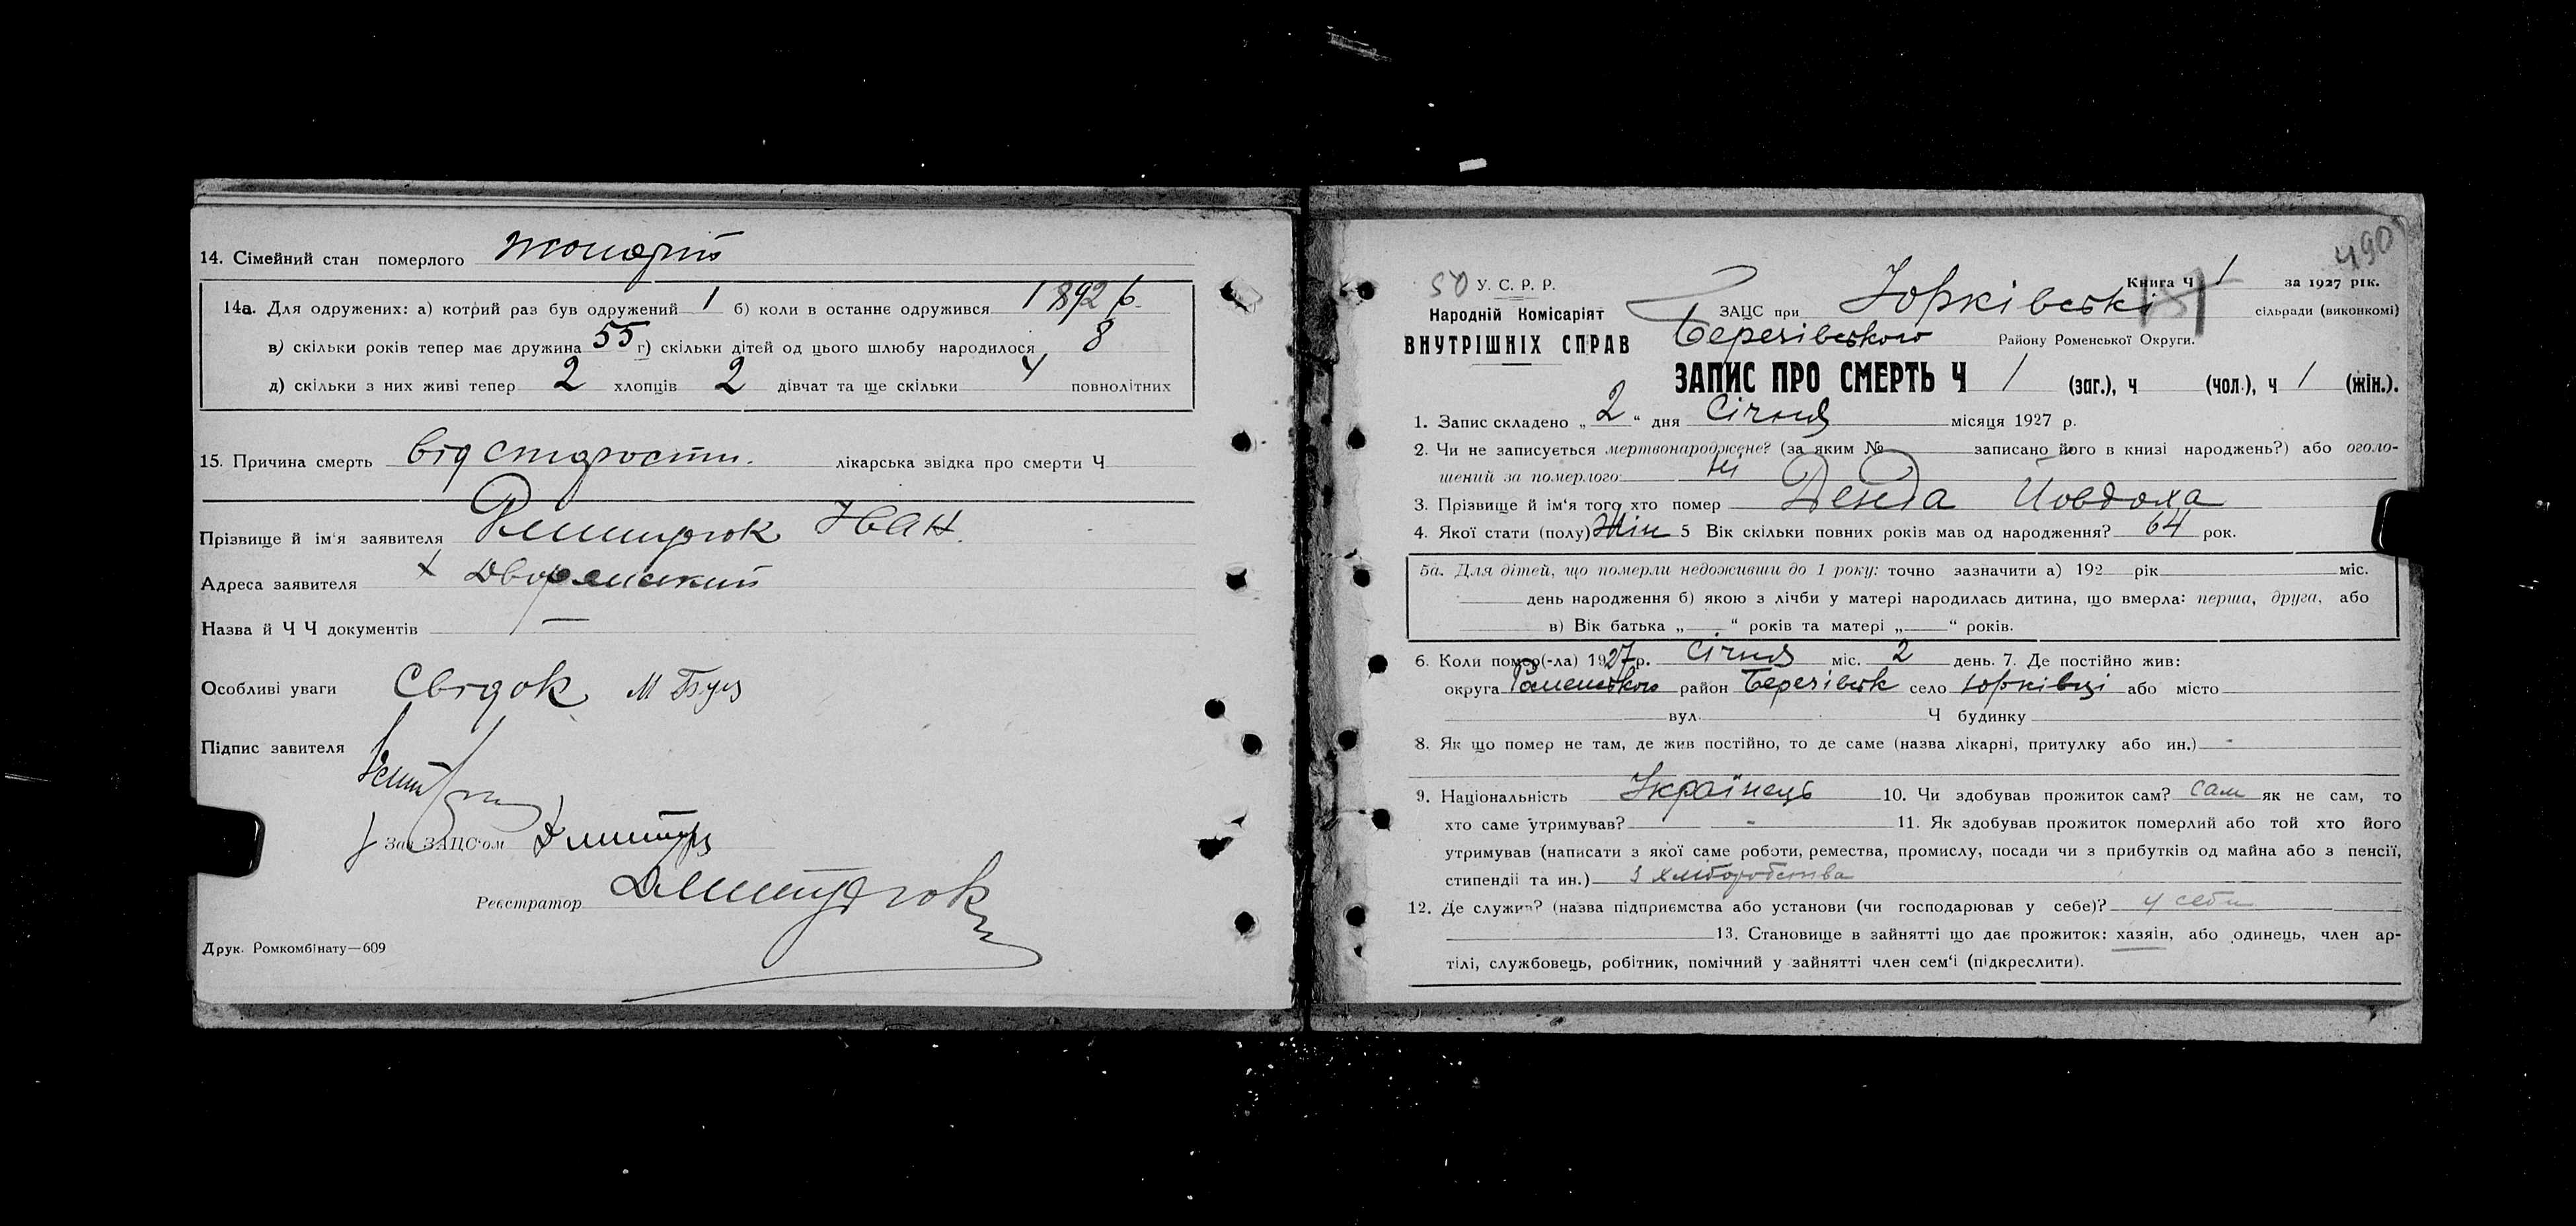 14. Сімейний стан померлого жонатий
14а. Для одружених: а) котрий раз був одружений 1 б) коли в останнє одружився 1892 б
в) скільки років тепер має дружина 55 г) скільки дітей од цього шлюбу народилося 8
д) скільки з них живі тепер 2 хлопців 2 дівчат та ще скільки 4 повнолітних
15. Причина смерть від старости. лікарська звідка про смерти Ч
Прізвище й ім'я заявителя Іван.
Адреса заявителя х
Назва й Ч Ч документів —
Особливі уваги Свідок М
Підпис завителя
Зав ЗАЦС'ом
Реєстратор
Друк. Ромкомбінату—609
490
50 У. С. Р. Р.
Книга Ч 1 за 1927 рік.
Народній Комісаріят
ВНУТРІШНІХ СПРАВ
ЗАЦС при Юрківські сільради (виконкомі)
Березівського Району Роменської Округи.
ЗАПИС ПРО СМЕРТЬ Ч 1 (заг.), ч (чол.), ч 1 (жін.).
1. Запис складено „ 2 “ дня Січня місяця 1927 р.
2. Чи не записується мертвонароджене? (за яким № записано його в книзі народжень?) або оголо-
шений за померлого: ні
3. Прізвище й ім'я того хто помер Денда Йовдоха
4. Якої стати (полу) Жін 5 Вік скільки повних років мав од народження? 64 рок.
5а. Для дітей, що померли недоживши до 1 року: точно зазначити а) 192 рік міс.
день народження б) якою з лічби у матері народилась дитина, що вмерла: перша, друга, або
в) Вік батька „ “ років та матері „ “ років.
6. Коли помер(-ла) 1927 р. Січня міс. 2 день. 7. Де постійно жив:
округа Роменського район Березівськ село Юрківці або місто
вул. Ч будинку
8. Як що помер не там, де жив постійно, то де саме (назва лікарні, притулку або ин.) -
9. Національність Українець 10. Чи здобував прожиток сам? сам як не сам, то
хто саме утримував? - 11. Як здобував прожиток померлий або той хто його
утримував (написати з якої саме роботи, ремества, промислу, посади чи з прибутків од майна або з пенсії,
стипендії та ин.) з хліборобства
12. Де служив? (назва підприємства або установи (чи господарював у себе)? у себе
13. Становище в зайнятті що дає прожиток: хазяін, або одинець, член ар-
тілі, службовець, робітник, помічний у зайнятті член сем'і (підкреслити).